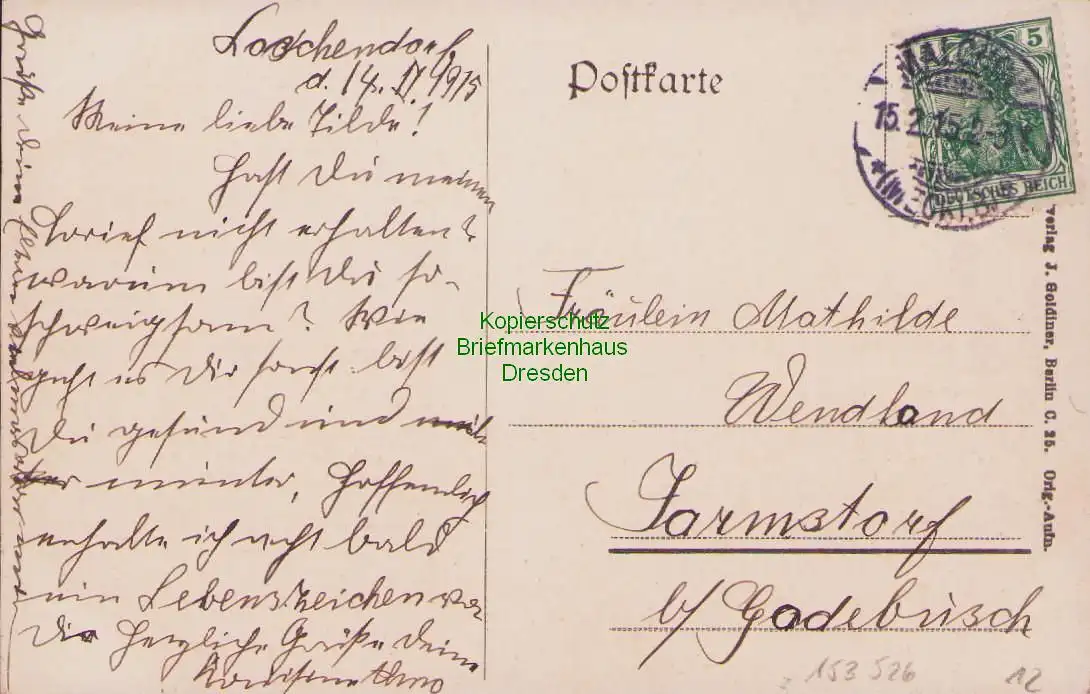 Loschendorf,
d. 14. II. 1915
Meine liebe Tilde!
Hast Du meinen
Brief nicht erhalten?
warum bist Du so
schweigsam? Wie
geht es Dir sonst bist
Du gesund und
munter, hoffentlich
erhalte ich recht bald
ein Lebenszeichen von
Dir Herzliche Grüße Deine
Grüße Deine Eltern
Postkarte
5
DEUTSCHES REICH
MALCHIN
15.2.15.
* (MECKLB.)
Fräulein Mathilde
Wendland
Jarmstorf
b/ Gadebusch
Kopierschutz
Briefmarkenhaus
Dresden
Verlag J. Goldiner, Berlin C. 25. Orig.-Aufn.
153 526
12